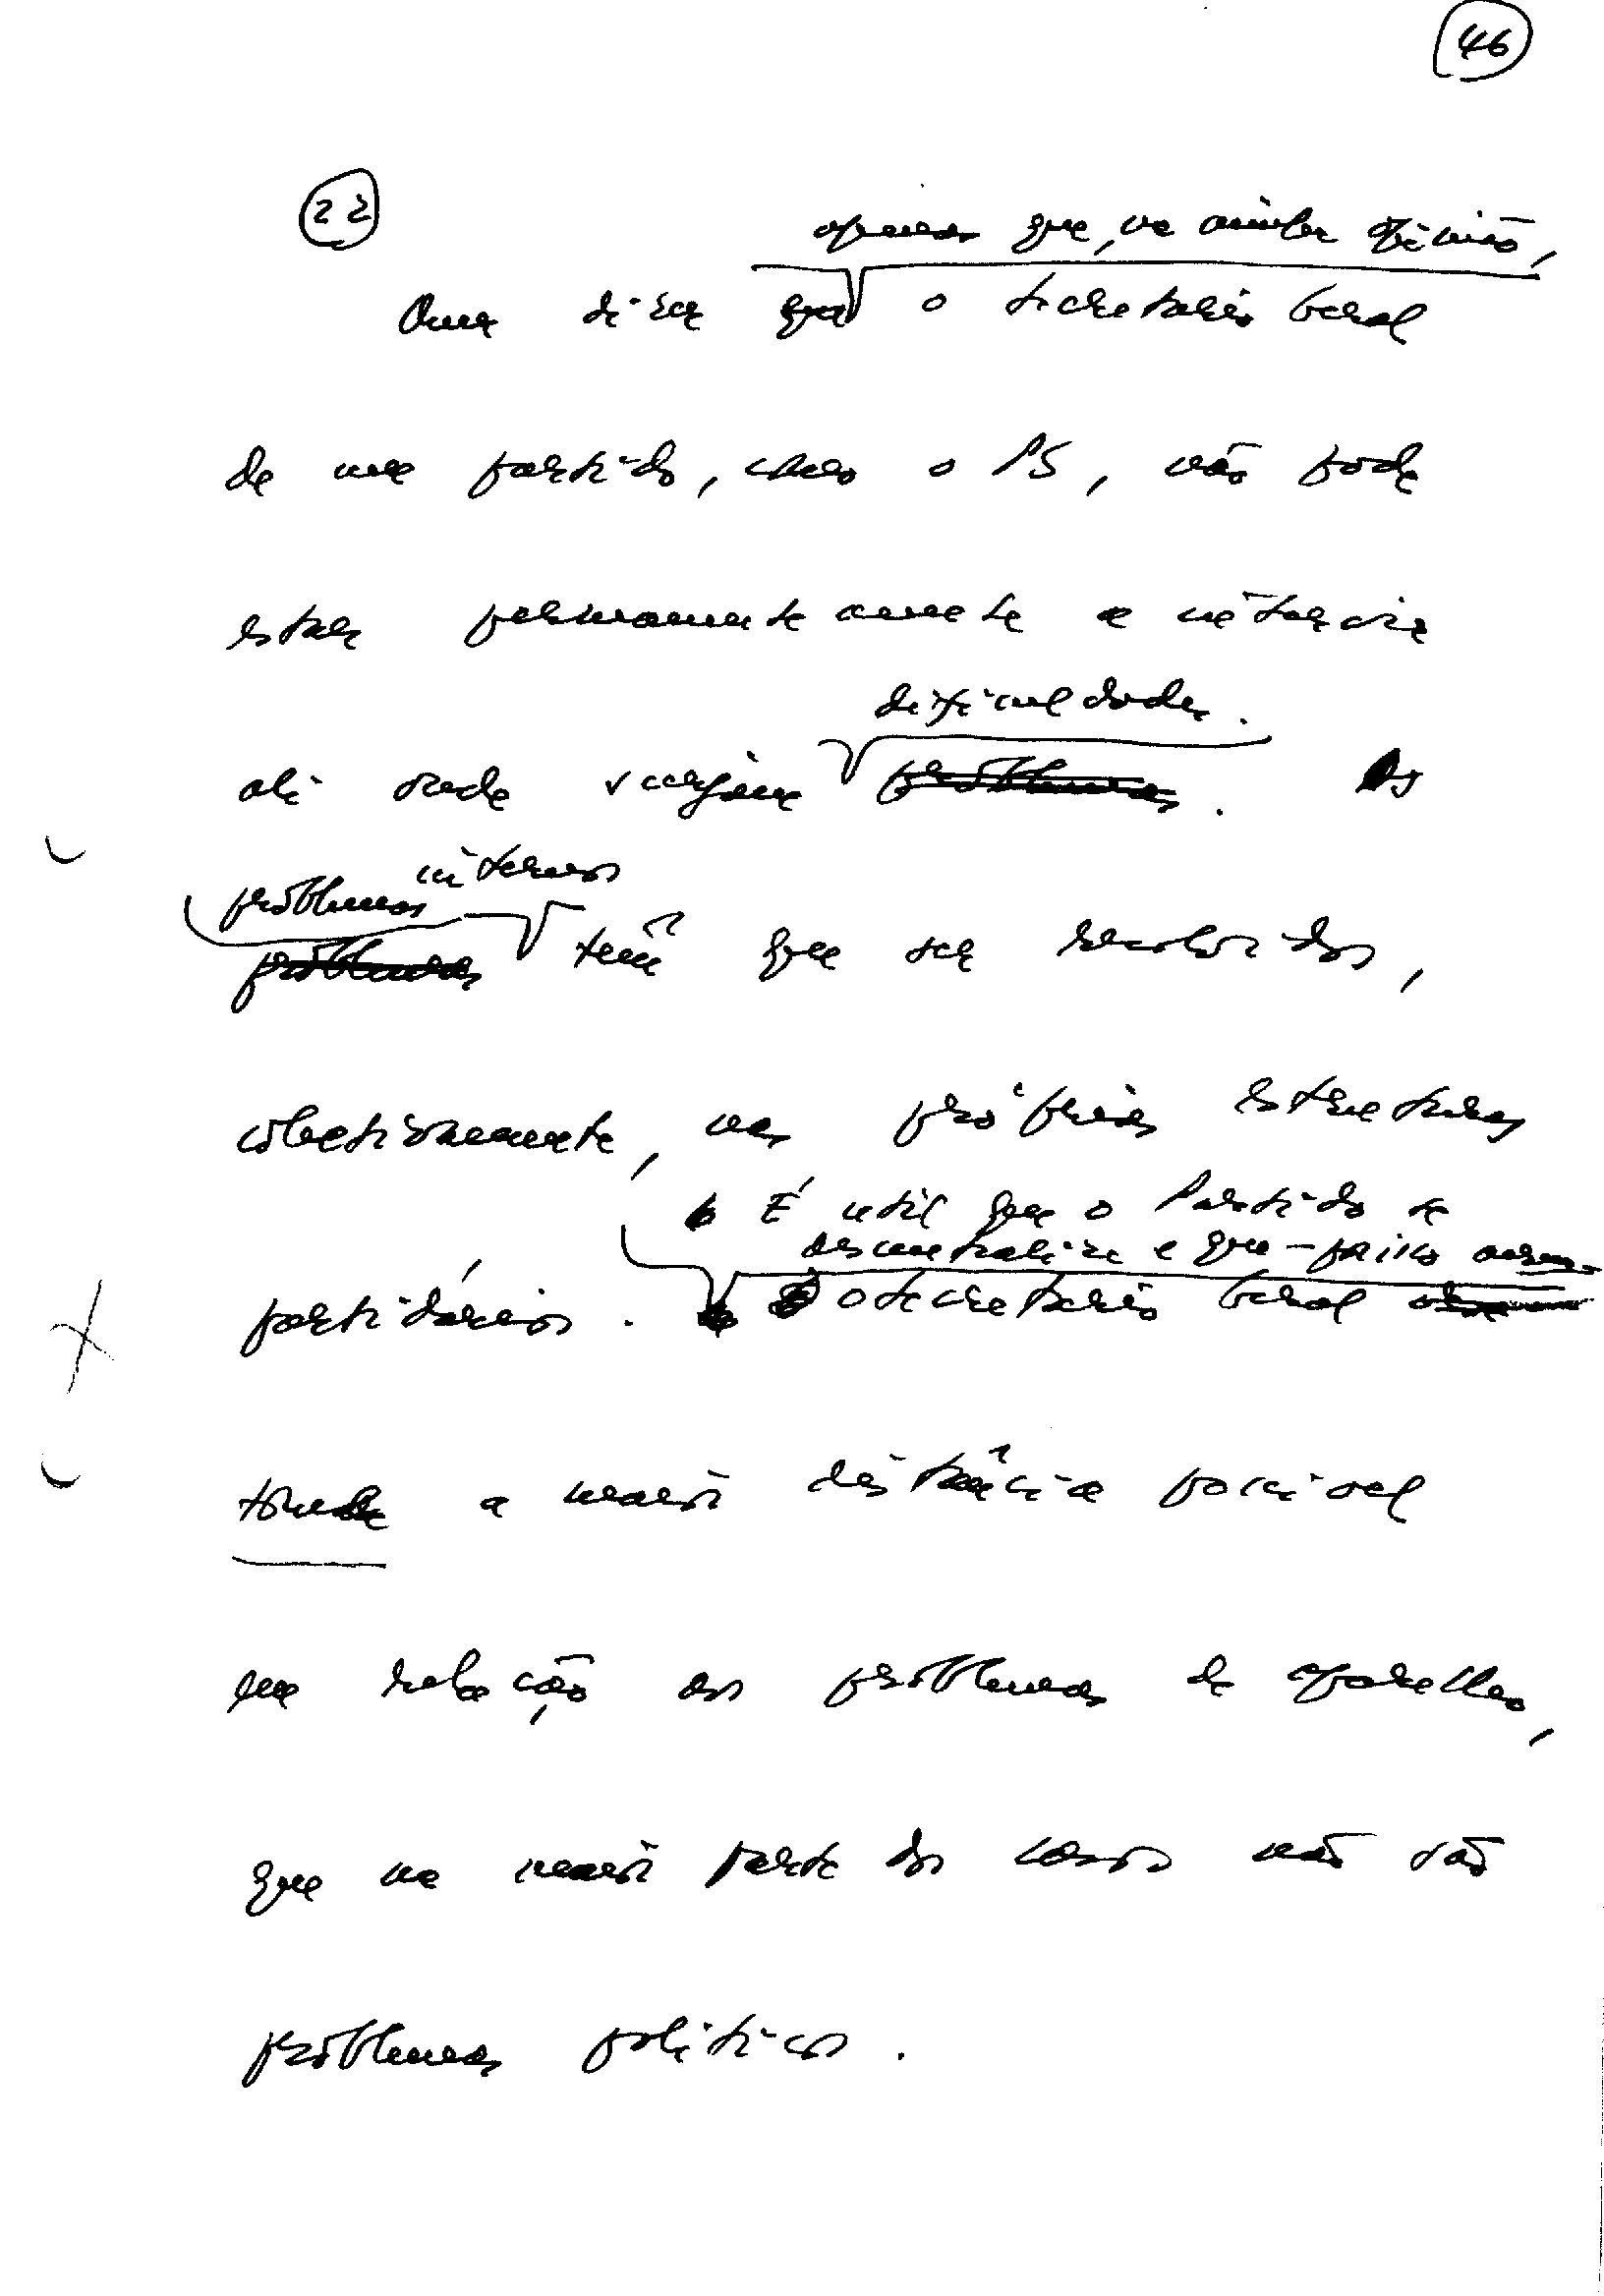 46
22
apenas que, na minha opinião,
Quer dizer que o secretário Geral
de um partido, como o PS, não pode
estar permanentemente a intervir
ali onde surgem
dificuldades.
problemas. Os
problemas internos
problemas têm que ser resolvidos,
colectivamente, nas próprias estruturas
É util que o Partido se
descentralize e que - por isso mesmo -
partidárias. o secretário Geral
tome a maior distância possivel
em relação aos problemas de aparelho,
que na maior parte dos casos não são
problemas politicos.